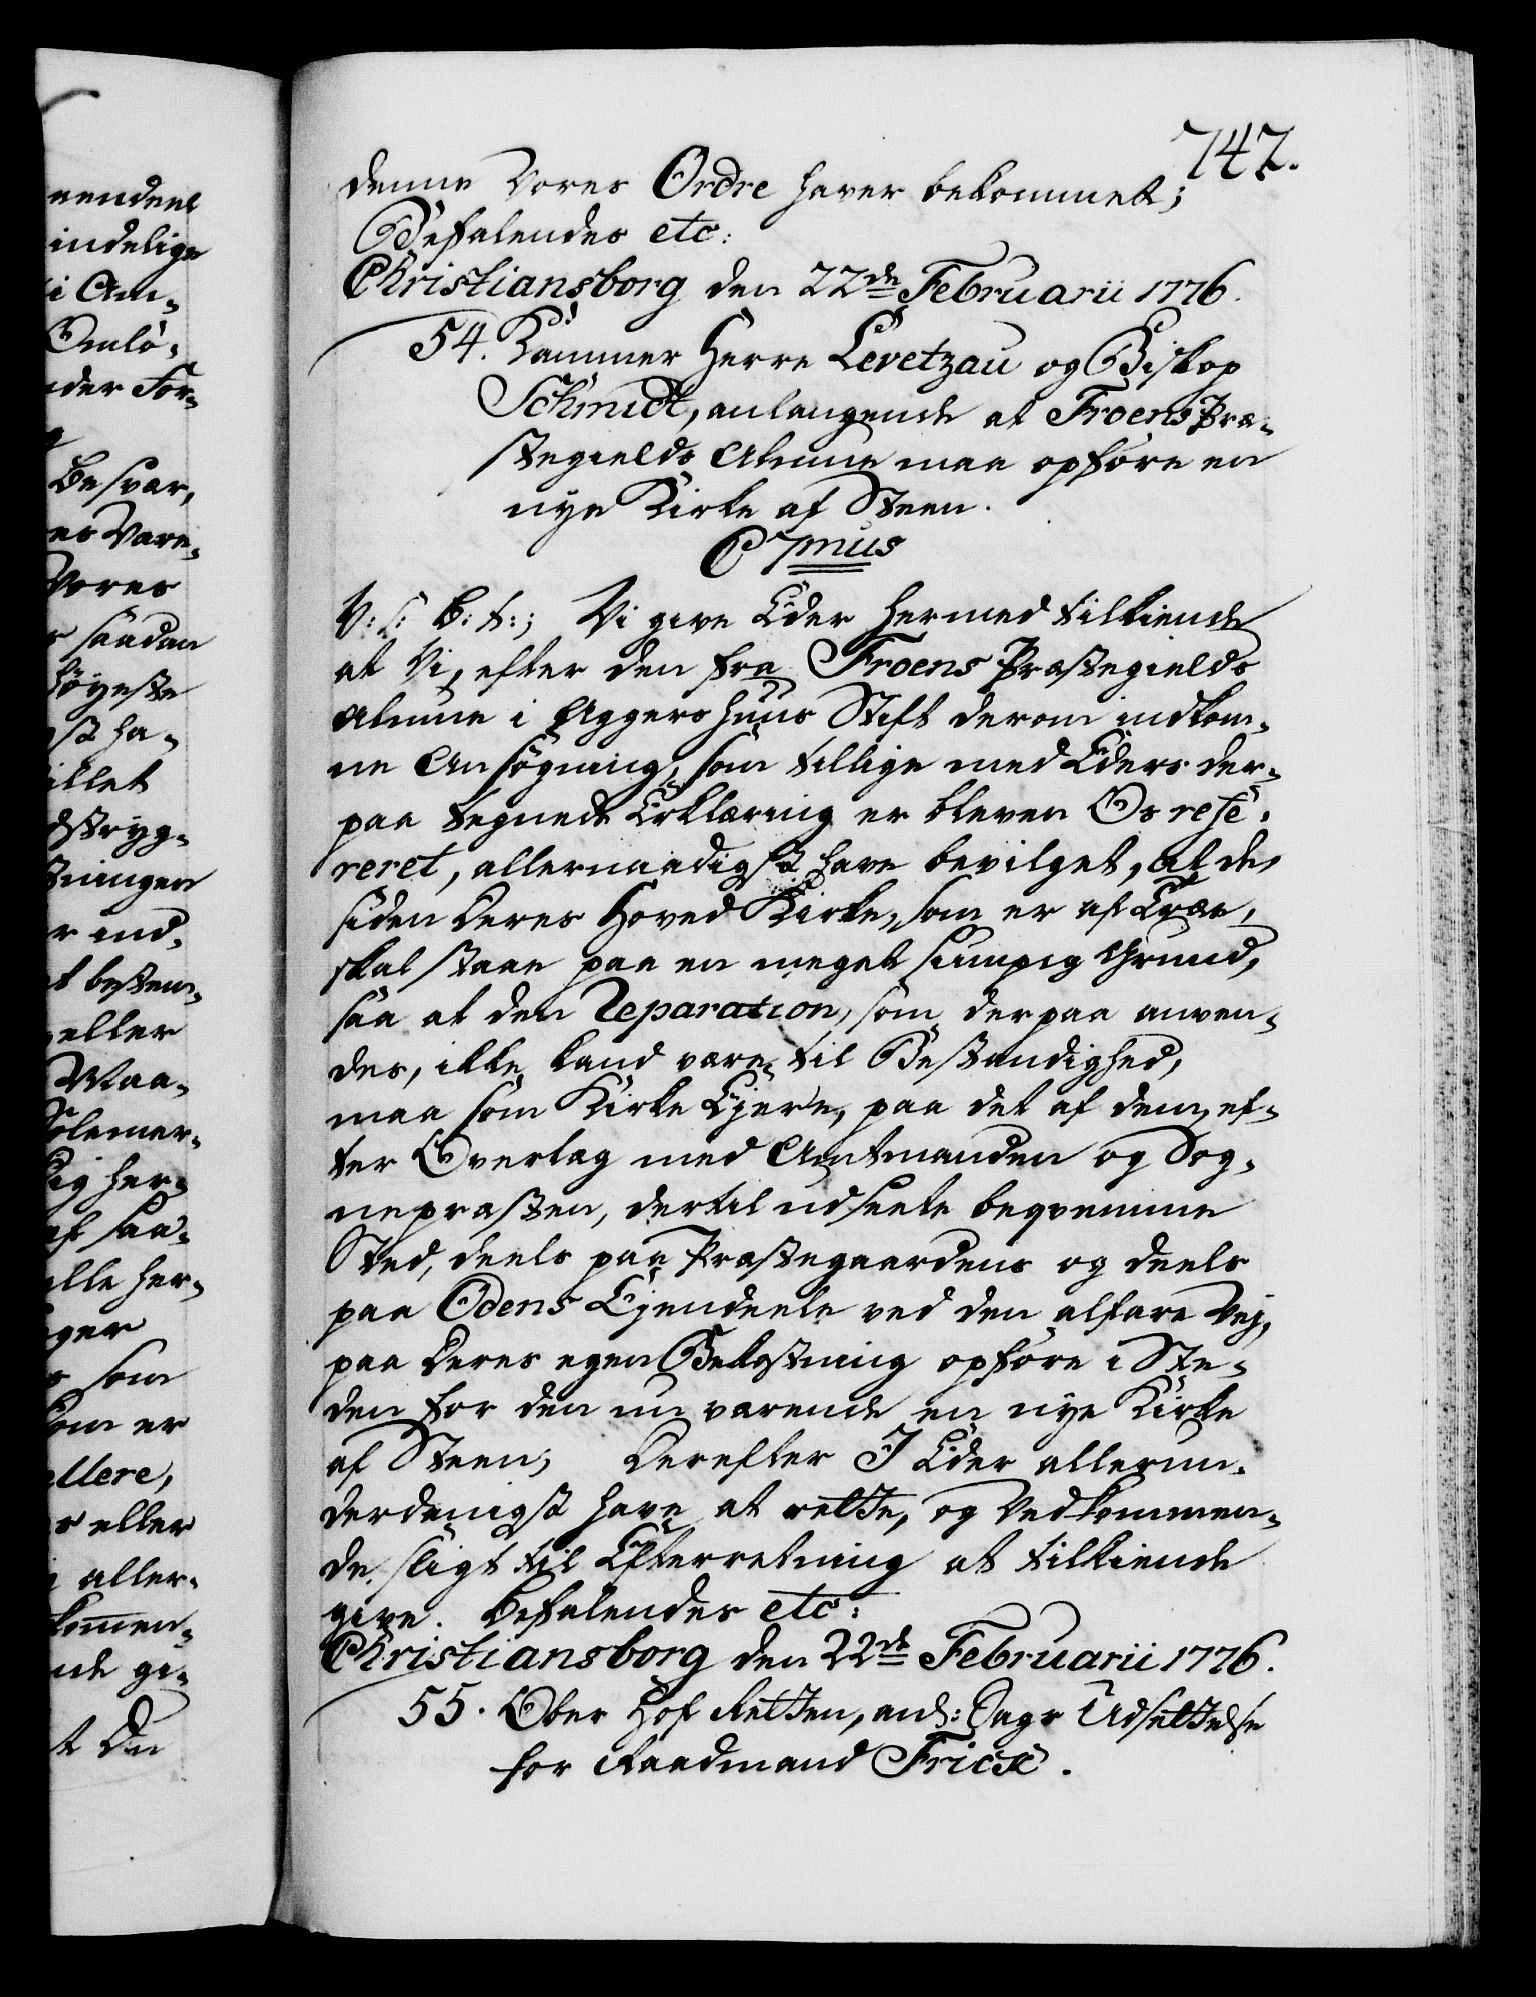 747.
denne Vores Ordre haver bekommet;
Befalendes etc:
Christiansborg den 22de Februarii 1776.
54. Kammer Herre Levetzau og Biskop
Schmidt, anlangende at Froens Præ-
stegields Almue maa opføre en
nye Kirke af Steen.
C 7mus
V: S: B: T:; Vi give Eder hermed tilkiende
at Vi, efter den fra Froens Præstegields
Almue i Aggershuus Stift derom indkom-
ne Ansøgning, som tillige med Eders der-
paa tegnede Erklæring er bleven Os refe-
reret, allernaadigst have bevilget, at de,
siden deres Hoved Kirke, som er af Træe,
skal staae paa en meget sumpig Grund,
saa at den Reparation, som derpaa anven-
des, ikke kand være til Bestandighed,
maa som Kirke Ejere, paa det af dem, ef-
ter Overlæg med Amtmanden og Sog-
nepræsten, dertil udseete beqvemme
Sted, deels paa Præstegaardens og deels
paa Odens Ejendeele ved den alfare Vej,
paa deres egen Bekostning opføre i Ste-
den for den nu værende en nye Kirke
af Steen; Derefter I Eder allerun-
derdanigst have at rette, og Vedkommen-
de sligt til Efterretning at tilkiende
give. Befalendes etc:
Christiansborg den 22de Februarii 1776.
55. Ober Hof Retten, anl: Dags Udsettelse
for Raadmand Fricke.